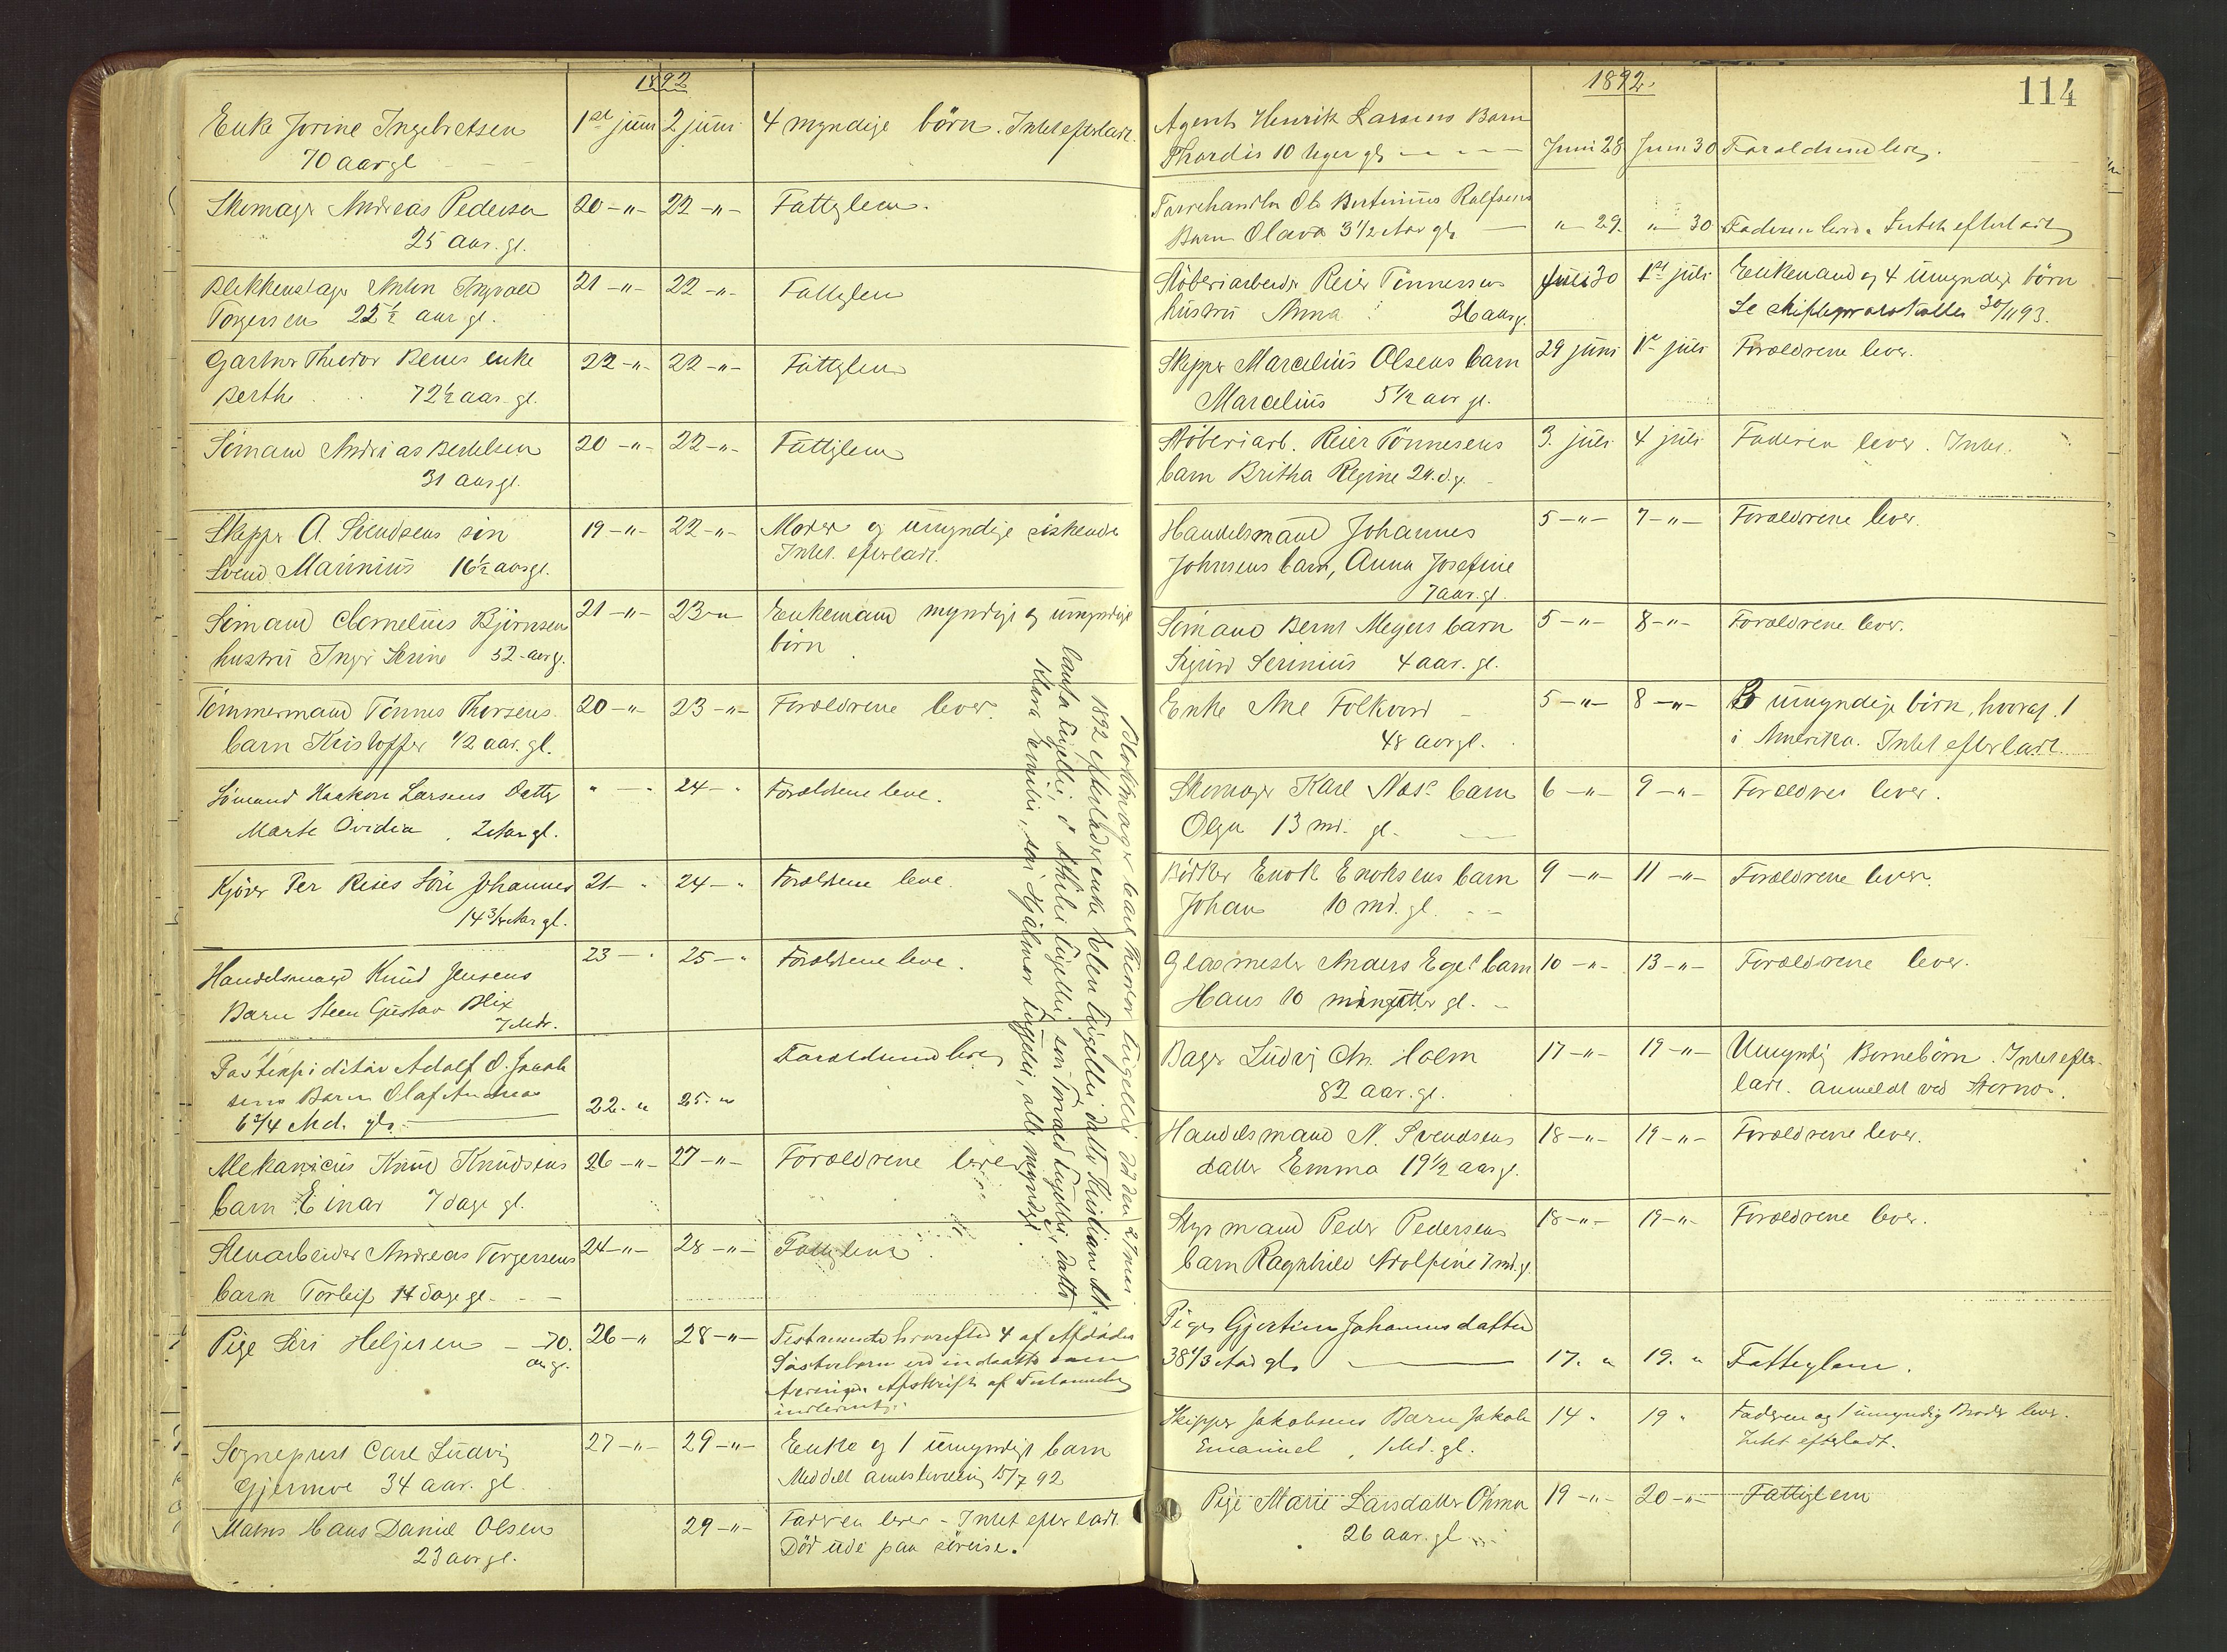 1892
Enke Jorine Ingebretsen
70 aar gl
1ste juni
2 juni
4 myndige börn. Intet efterladt.
Skomager Andreas Pedersen
25 aar. gl.
20 -"-
22 -"-
Fattiglem.
Blikkenslager Anton Ingvald
Torgersens 22 1/2 aar gl.
21 -"-
22 -"-
Fattiglem
Gartner Theodor Benes enke
Berthe 72 1/2 aar. gl.
22 -"-
22 -"-
Fattiglem
Sömand Andreas Bertelsen
31 aar gl.
20 -"-
22 -"-
Fattiglem
Skipper A. Svendsens sön
Svend Marinius 16 1/2 aar gl.
19 -"-
22 -"-
Moder og umyndige söskende
Intet efterladt.
Sömand Cornelius Björnsens
hustru Inger Serine 52 aar g.
21 -"-
23 -"
Enkemand myndige og umyndige
börn
Tömmermand Tönnes Thorsens
barn Kristoffer 1/2 aar. gl.
20 -"-
23 -"-
Forældrene lever.
Sömand Haakon Larsens Datter
Marte Ovidia . 2 Aar gl.
" - "
24 - "
Forældrene leve.
Kjörer Per Reies Sön Johannes
14 3/4 Aar gl.
21 - "
24 - "
Forældrene leve.
Handelsmand Knud Jensens
Barn Steen Gustav Blix
7 Mdr.
23 - "
25 - "
Forældrene leve.
Postexpeditör Adolf O. Jacob
sens Barn Olaf Andreas
6 3/4 Md. gl.
22. "
25. "
Forældrene lever
Mekanicus Knud Knudsens
barn Einar 7 dage gl.
26 -"-
27 -"-
Forældrene lever
Stenarbeider Andreas Torgersens
barn Torleif 14 dage gl.
24 -"-
28 -"-
Fattiglem
Pige Siri Helgesen - 70.
aar gl.
26 -"
28 -"-
Testamente hvorefter 4 af Afdødes
Søsterbørn er indsatte som
Arvinger. Afskrift af Testamentet
indleveret.
Sogneprest Carl Ludvig
Gjermoe 34 aar. gl.
27 -"-
29 -"-
Enke og 1 umyndigt barn
Meddelt 15/7 92
Matros Hans Daniel Olsen
23 aar gl.
29 -"-
Faderen lever - Intet efterladt.
Död ude paa söreise.
Carl Theodor Tügellie död den 27 mai
1892 efterlader enke Helen Tügellie datter Kristiane M.
Tügellie, sön Tügellie, datter
Klara Tügellie, sön Hjalmar Tügellie, alle myndige.
114
1892.
Agent Henrik Larsens Barn
Thordis 10 Uger gl.
Juni 28
Juni 30
Forældrene lever.
Torvehandler Ole Bertinius Rolfsens
Barn Olava 3 1/2 Aar gl.
" 29.
" 30
Faderen lever. Intet efterladt
Stöberiarbeider Reier Tönnesens
hustru Anna 36 aar g.
Juni 30
1ste juli
Enkemand og 4 umyndige börn
Se skifteprotokollen 30/11 93.
Skipper Marcelius Olsens barn
Marcelius 5 1/2 aar gl.
29 juni
1ste juli
Forældrene lever.
Stöberiarb. Reier Tönnesens
barn Britha Regine 24. d. g.
3. juli
4 juli
Faderen lever. Intet.
Handelsmand Johannes
Johnsens barn, Anna Josefine
7 aar. gl.
5 -"-
7 -"-
Forældrene lever.
Sömand Bernt Meyers barn
Sigurd Serinius 4 aar. gl.
5 -"-
8 -"-
Forældrene lever.
Enke Ane Folkvord
48 aar gl.
5 -"-
8 -"-
umyndige börn, hvoraf 1
i Amerika. Intet efterladt.
Skomager Karl Næss barn
Olga 13 md. gl.
6 -"-
9 -"-
Forældrene lever.
Bödker Enok Enoksens barn
Johan 10 md. gl.
9 -"-
11 -"-
Forældrene lever.
Glasmester Anders Eges barn
Hans 10 maaneder gl.
10 -"-
13 -"-
Forældrene lever.
Bager Ludvig Chr. Holm
82 aar. gl.
17 -"-
19 -"-
Umyndig Börnebörn. Intet efter-
ladt. anmeldt ved
Handelsmand N. Svendsens
datter Emma 19 1/2 aar gl.
18 -"-
19 -"-
Forældrene lever.
Styrmand Peder Pedersens
barn Ragnhild Adolfine 7 md. g.
18 -"-
19 -"-
Forældrene lever.
Pige Gjertine Johannesdatter
38 1/3 Aar gl.
17. "
19. "
Fattiglem.
Skipper Jakobsens Barn Jakob
Emanuel , 1 Md. gl.
14 "
19 "
Faderen og 1 umyndig Broder lever.
Intet efterladt.
Pige Marie Larsdatter Ohma
26 aar. gl
19 -"-
20 -"-
Fattiglem